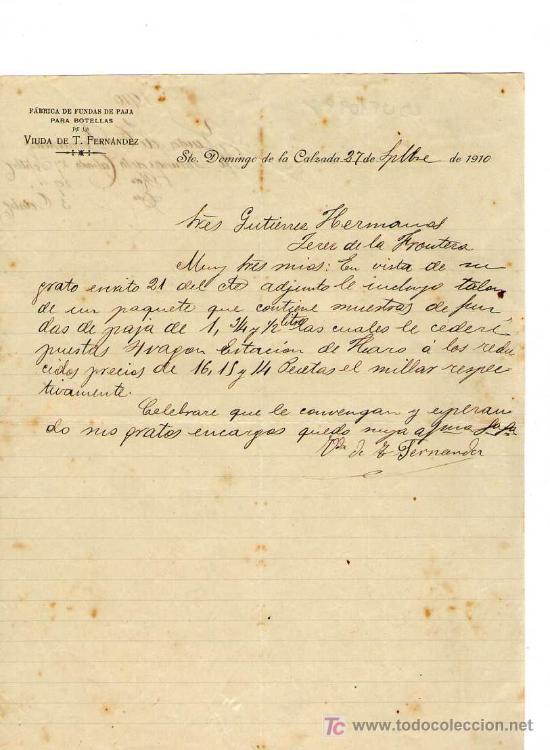 FÁBRICA DE FUNDAS DE PAJA
PARA BOTELLAS
DE LA
VIUDA DE T. FERNÁNDEZ
Sto. Domingo de la Calzada 27 de Sptbre de 1910
Sres Gutierrez Hermanos
Jerez de la Frontera
Muy Sres mios: En vista de su
grato escrito 21 del cte adjunto le incluyo talon
de un paquete que contiene muestras de fun
das de paja de 1, 3/4 y 1/2 litros las cuales le cederé
puestas s/wagon Estacion de Haro á los redu
cidos precios de 16, 15 y 14 Pesetas el millar respec
tivamente.
Celebrare que le convengan y esperan
do sus gratos encargos quedo suya
Vda de T Fernandez
TC www.todocoleccion.net